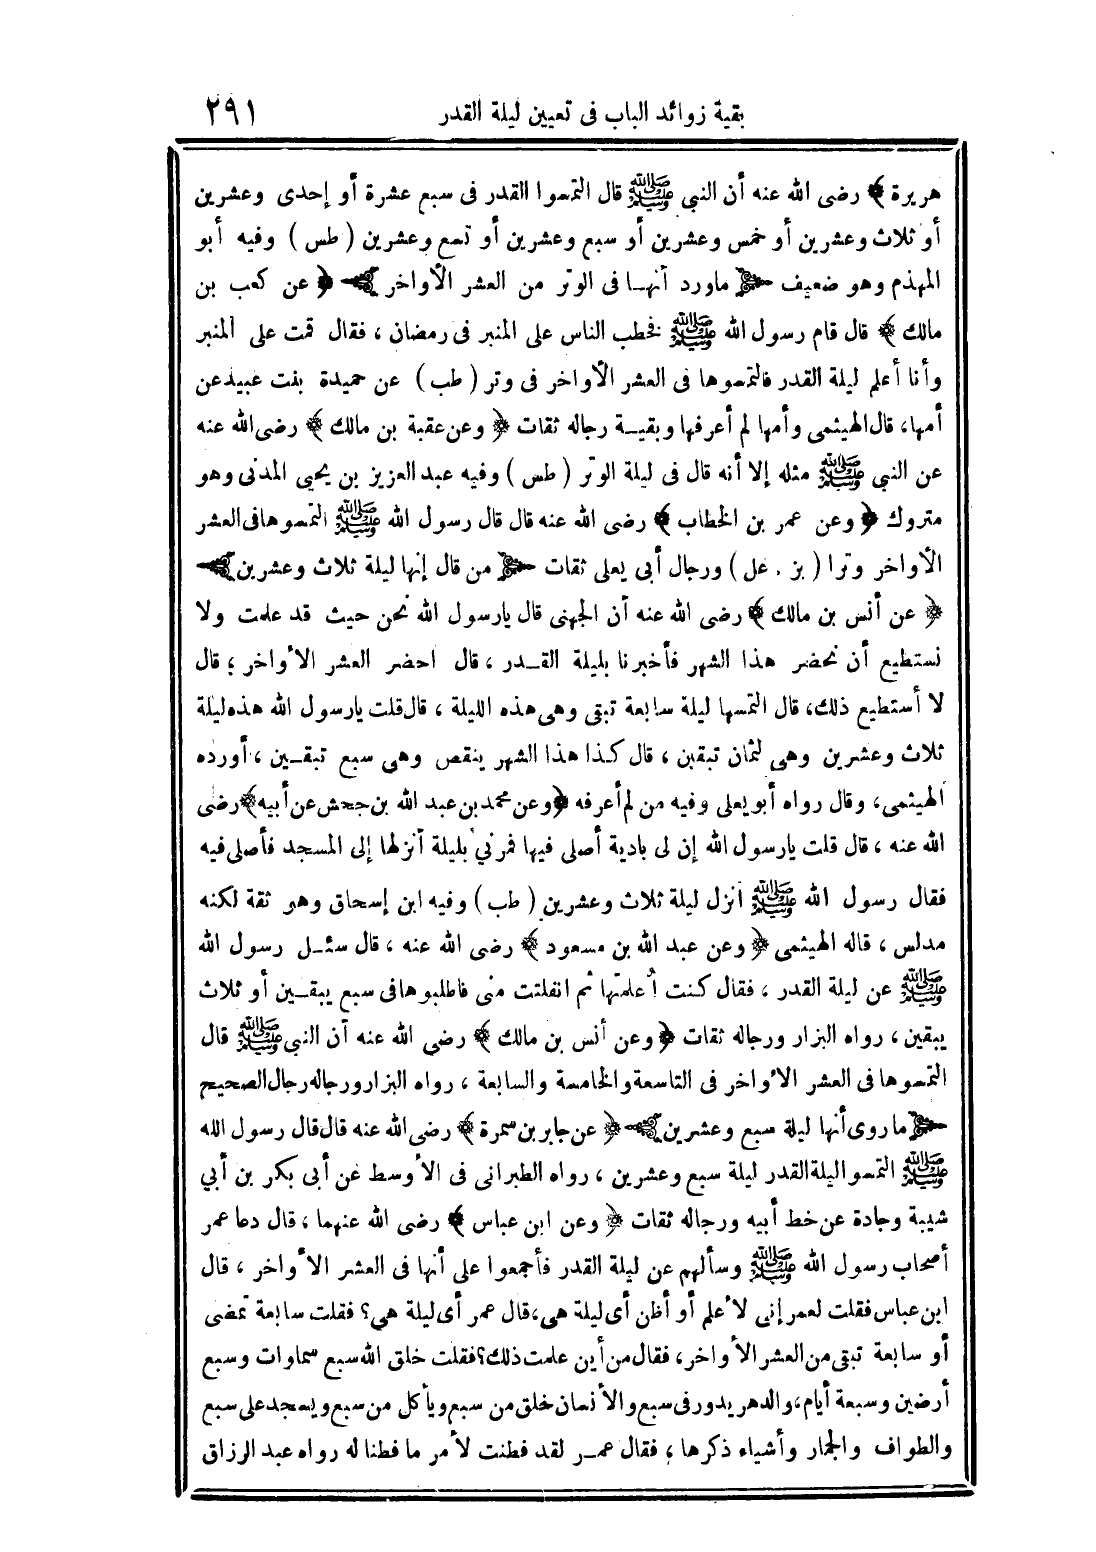 بقية زوائد الباب فى تعيين ليلة القدر ٢٩١
هريرة ﴾ رضى الله عنه أن النبى ﷺ قال التمسوا القدر فى سبع عشرة أو إحدى وعشرين
أو ثلاث وعشرين أو خمس وعشرين أو سبع وعشرين أو تسع وعشرين ( طس ) وفيه أبو
المهذم وهو ضعيف ماورد أنهـا فى الوتر من العشر الأواخر ﴿ عن كعب بن
مالك ﴾ قال قام رسول الله ﷺ فخطب الناس على المنبر فى رمضان ، فقال قمت على المنبر
وأنا أعلم ليلة القدر فالتمسوها فى العشر الأواخر فى وتر ( طب ) عن حميدة بنت عبيد عن
أمها، قال الهيثمى وأمها لم أعرفها وبقيـة رجاله ثقات ﴿ وعن عقبة بن مالك ﴾ رضى الله عنه
عن النبي ﷺ مثله إلا أنه قال فى ليلة الوتر ( طس ) وفيه عبد العزيز بن يحيى المدنى وهو
متروك ﴿ وعن عمر بن الخطاب ﴾ رضى الله عنه قال قال رسول الله ﷺ التمسوها فى العشر
الأواخر وترا ( بز . عل ) ورجال أبى يعلى ثقات من قال إنها ليلة ثلاث وعشرين
﴿ عن أنس بن مالك ﴾ رضى الله عنه أن الجهنى قال يارسول الله نحن حيث قد علمت ولا
نستطيع أن نحضر هذا الشهر فأخبرنا بليلة القـدر ، قال احضر العشر الأواخر ، قال
لا أستطيع ذلك، قال التمسها ليلة سابعة تبقى وهى هذه الليلة ، قال قلت يارسول الله هذه ليلة
ثلاث وعشرين وهى لثمان تبقين ، قال كذا هذا الشهر ينقص وهى سبع تبقـين ، أورده
الهيثمى، وقال رواه أبو يعلى وفيه من لم أعرفه ﴿ وعن محمد بن عبد الله بن جحش عن أبيه ﴾ رضى
الله عنه ، قال قلت يارسول الله إن لى بادية أصلى فيها فمرني بليلة أنزلها إلى المسجد فأصلى فيه
فقال رسول الله ﷺ انزل ليلة ثلاث وعشرين ( طب ) وفيه ابن إسحاق وهو ثقة لكنه
مدلس ، قاله الهيثمى ﴿ وعن عبد الله بن مسعود ﴾ رضى الله عنه ، قال سئـل رسول الله
ﷺ عن ليلة القدر ، فقال كنت أُعلمتها ثم انفلتت منى فاطلبوها فى سبع يبقـين أو ثلاث
يبقين ، رواه البزار ورجاله ثقات ﴿ وعن أنس بن مالك ﴾ رضى الله عنه أن النبى ﷺ قال
التمسوها فى العشر الأواخر فى التاسعة والخامسة والسابعة ، رواه البزار ورجاله رجال الصحيح
ما روى أنها ليلة سبع وعشرين ﴿ عن جابر بن سمرة ﴾ رضى الله عنه قال قال رسول الله
ﷺ التمسوا ليلة القدر ليلة سبع وعشرين ، رواه الطبرانى فى الأوسط عن أبى بكر بن أبي
شيبة وجادة عن خط أبيه ورجاله ثقات ﴿ وعن ابن عباس ﴾ رضى الله عنهما ، قال دعا عمر
أصحاب رسول الله ﷺ وسألهم عن ليلة القدر فأجمعوا على أنها فى العشر الأواخر ، قال
ابن عباس فقلت لعمر إنى لأعلم أو أظن أى ليلة هى، قال عمر أى ليلة هي؟ فقلت سابعة تمضى
أو سابعة تبقى من العشر الأواخر، فقال من أين علمت ذلك؟ فقلت خلق الله سبع سماوات وسبع
أرضين وسبعة أيام، والدهر يدور فى سبع والأنسان خلق من سبع ويأكل من سبع ويسجد على سبع
والطواف والجمار وأشياء ذكرها ، فقال عمـر لقد فطنت لأمر ما فطنا له رواه عبد الرزاق